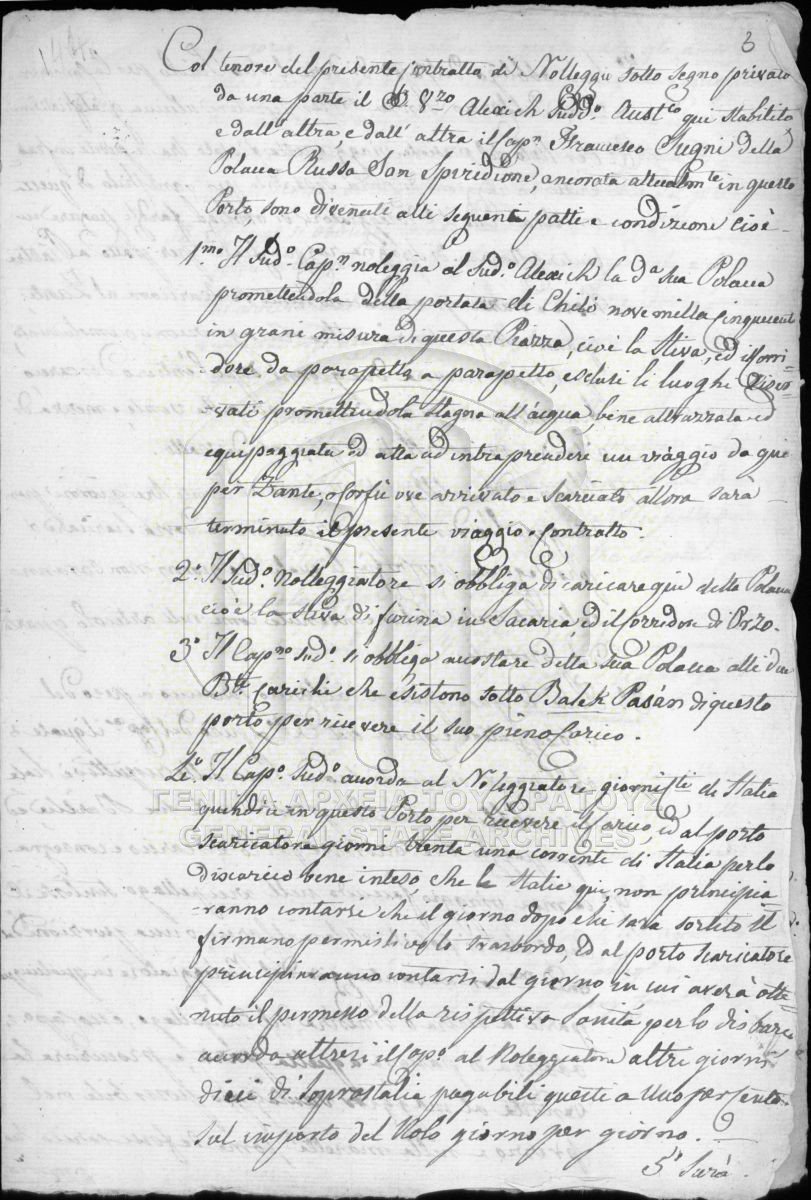 3
Col tenore del presente contratto di Nolleggio sotto segno privato
da una parte il Alexich Sud.º Aust.co qui stabilito
e dall'altra e dall'altra il Cap.n Francesco della
Polacca Russa San Spiridione, ancorata attualm.te in questo
Porto, sono divenuti alli seguenti patti e condizioni cioè
1.mo Il Sud.º Cap.n noleggia al Sud.º Alexich la d.a sua Polacca
promettendola della portata di Chilò nove milla Cinquecenti
in grani misura di questa Piazza, cioè la Stiva, ed il Corri=
dore da parapetto a parapetto, esclusi li luoghi riser=
=vati promettendola stagna all'acqua, bene attrazzata ed
equipaggiata ed atta ad intraprendere un viaggio da qui
per Zante, o Corfù ove arrivato e scaricato allora sarà
terminato il presente viaggio e Contratto.
2.º Il Sud.º Nolleggiatore si obbliga di caricare qui detta Polacca
cioè la stiva di farina in Sacaria, ed il Corridore di Orzo.
3º Il Cap.no Sud.º si obbliga accostare detta sua Polacca alli due
B.ti Carichi che esistono sotto Balek Pasàn di questo
porto per ricevere il suo pieno Carico.
4.º Il Cap.º Sud.º accorda al Noleggiatore giorni di Stalia
quindici in questo Porto per ricevere il Carico ed al porto
Scaricatore giorni trenta una corrente di Stalia per lo
discarico bene inteso, che le Stalie qui, non principia
=ranno contarsi che il giorno dopo che sarà sortito il
firmano permissivo lo trasbordo, ed al porto Scaricatore
principiaranno contarsi dal giorno in cui averà otte
nuto il permesso della rispettiva Sanità per lo disbarco
accorda altresì il Cap.º al Noleggiatore altri giorni
dieci di Soprastalia pagabili questi a uno per cento
sul importo del Nolo giorno per giorno.
5º Sarà
ΓΕΝΙΚΑ ΑΡΧΕΙΑ ΤΟΥ ΚΡΑΤΟΥΣ
GENERAL STATE ARCHIVES